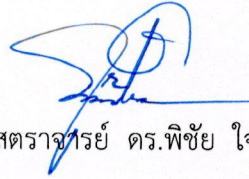 สตราจารย์ ดร.พิชัย ใจ